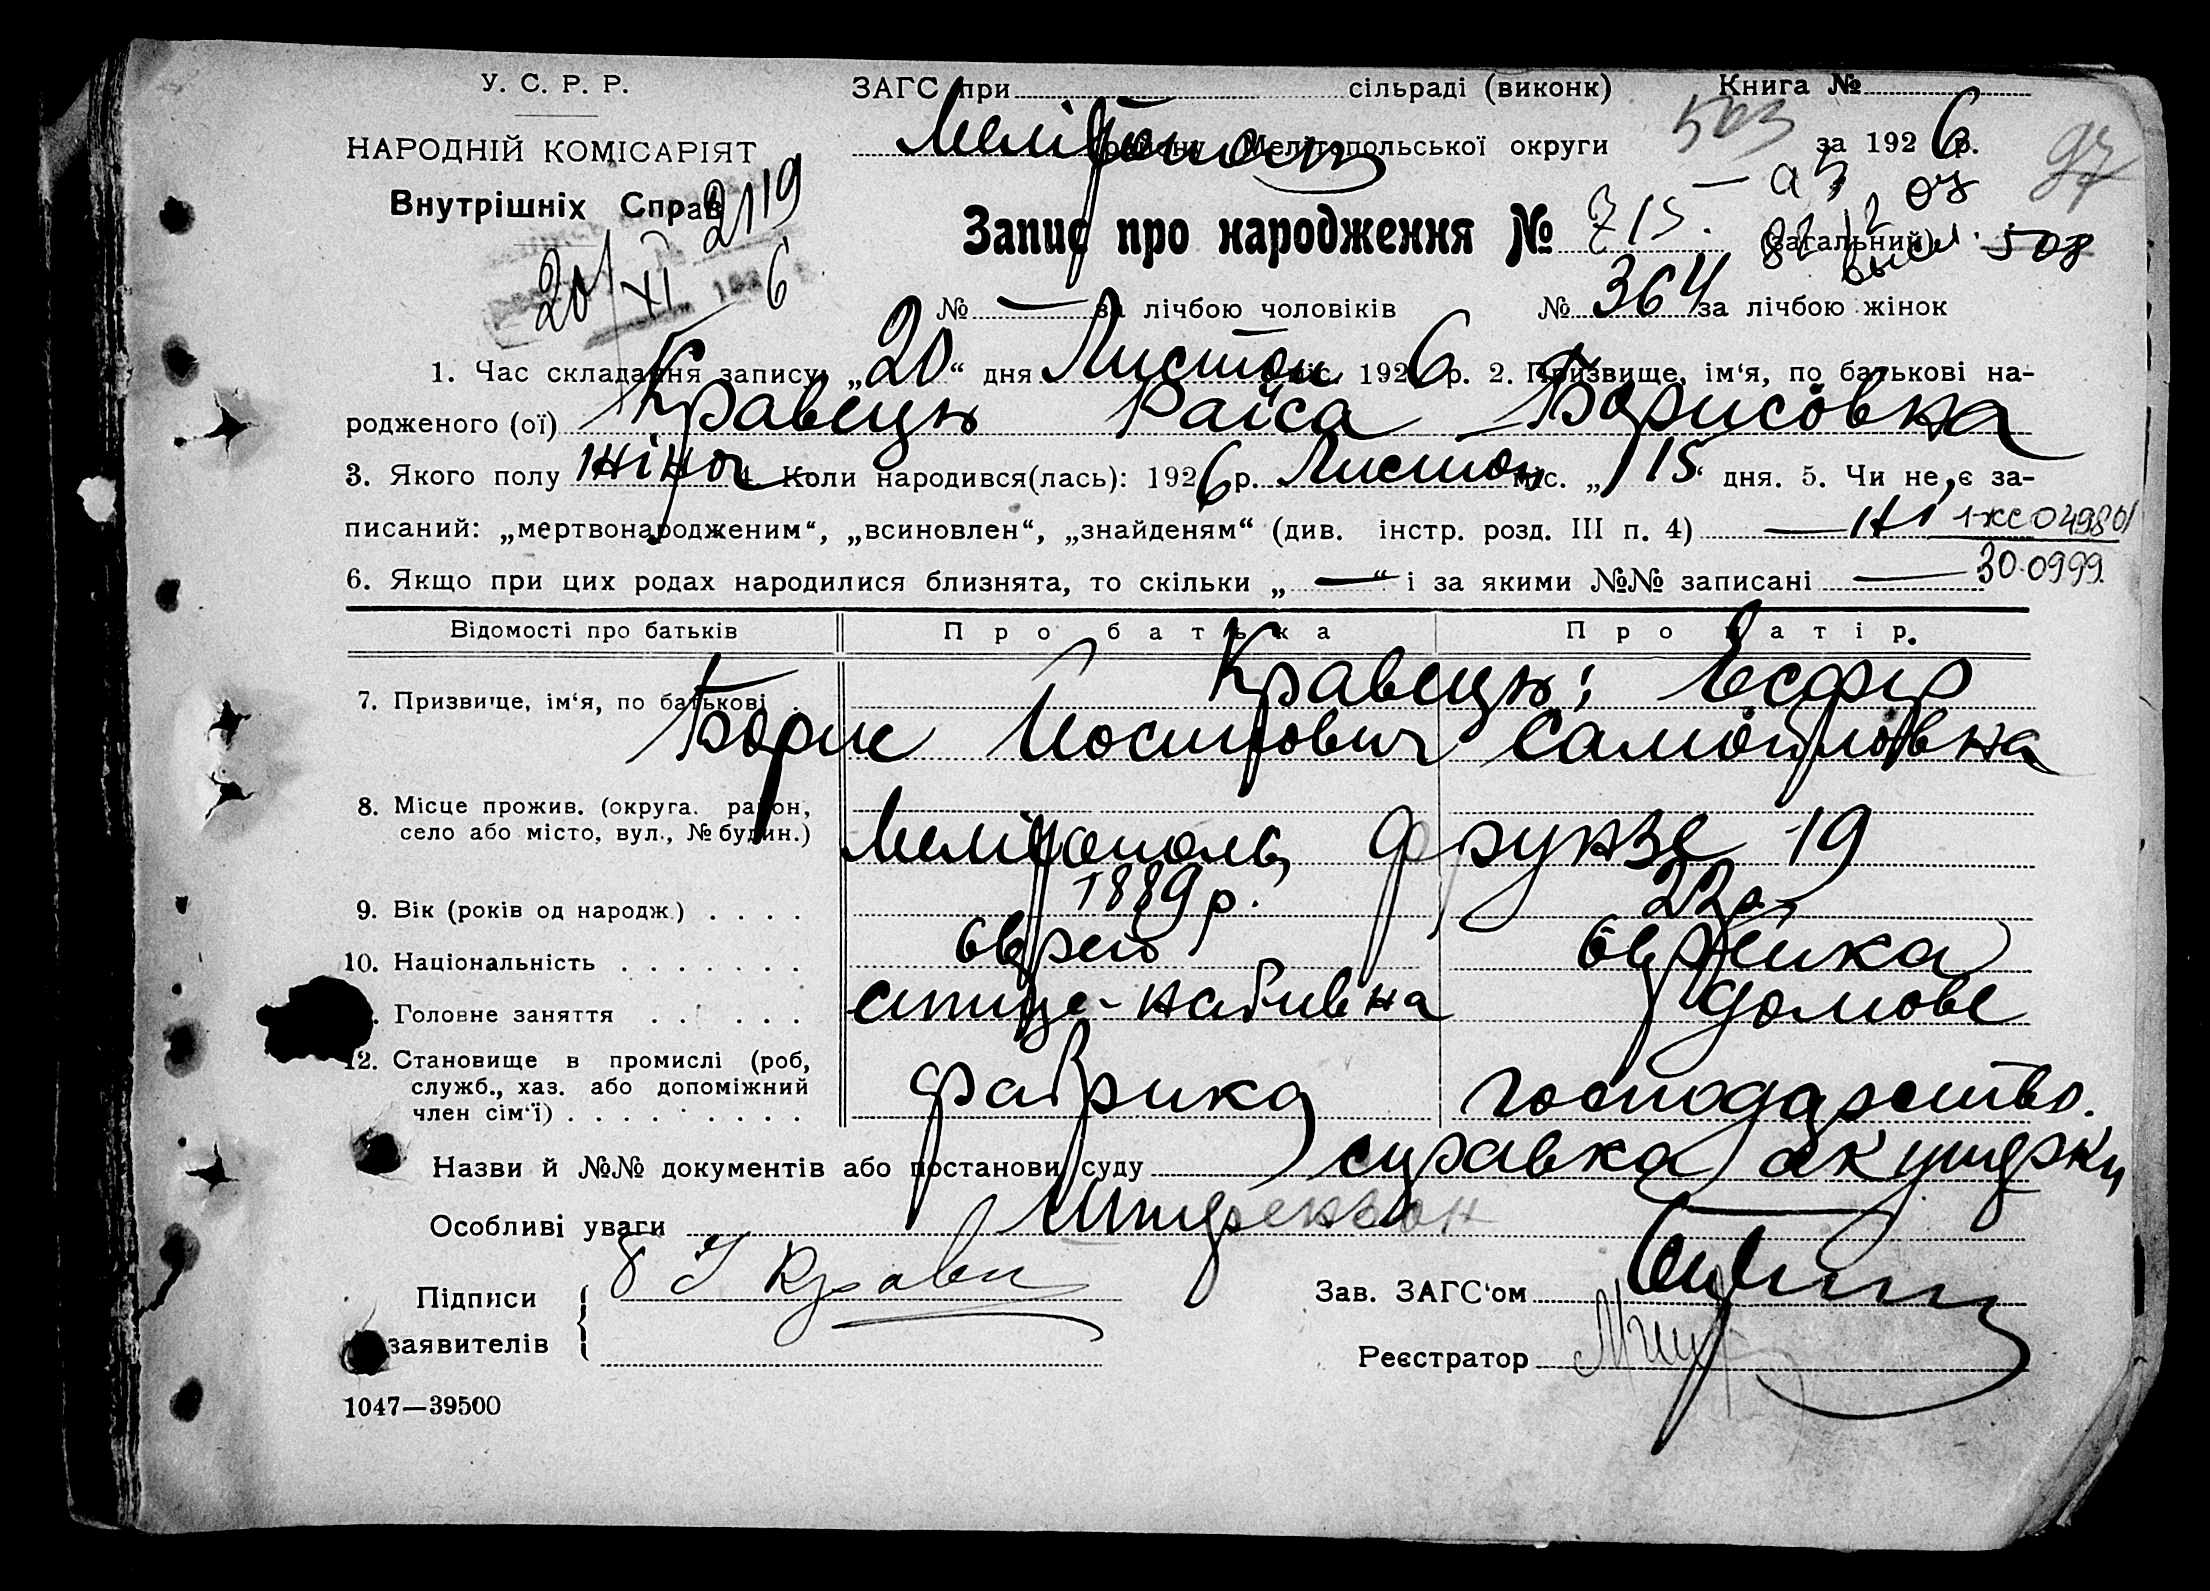 У. С. Р. Р.
НАРОДНІЙ КОМІСАРІЯТ
Внутрішніх Справ
2119
20/XI 1926
ЗАГС при сільраді (виконк) Книга №
Мелітополь району Мелітопольської округи 503 за 1926 р. 97
Запис про народження № 715. (загальний) 508
№ — за лічбою чоловіків № 364 за лічбою жінок
1. Час складання запису „20“ дня Листоп міс. 1926 р. 2. Призвище, ім‘я, по батькові на-
родженого (ої) Кравець Раїса Борисовна
3. Якого полу жіноч 4. Коли народився(лась): 1926 р. Листоп міс. „15“ дня. 5. Чи не є за-
писаний: „мертвонародженим“, „всиновлен“, „знайденям“ (див. інстр. розд. III п. 4) — ні
30.09.99.
6. Якщо при цих родах народилися близнята, то скільки „—“ і за якими №№ записані —
Відомості про батьків Про батька Про матір.
7. Призвище, ім‘я, по батькові Кравець: Есфір
Борис Иосипович Самойловна
8. Місце прожив. (округа. район,
село або місто, вул., № будин.) Мелітополь, Фрунзе 19
9. Вік (років од народж.) . . . . 1889 р. 22 р.
10. Національність . . . . . . . єврей єврейка
. Головне заняття . . . . . . набивна домове
12. Становище в промислі (роб,
служб., хаз. або допоміжний
член сім‘ї) . . . . . . . . . . фабрика господарство.
Назви й №№ документів або постанови суду справка акушерки
Особливі уваги
Підписи
заявителів
Зав. ЗАГС‘ом
Реєстратор
1047—39500